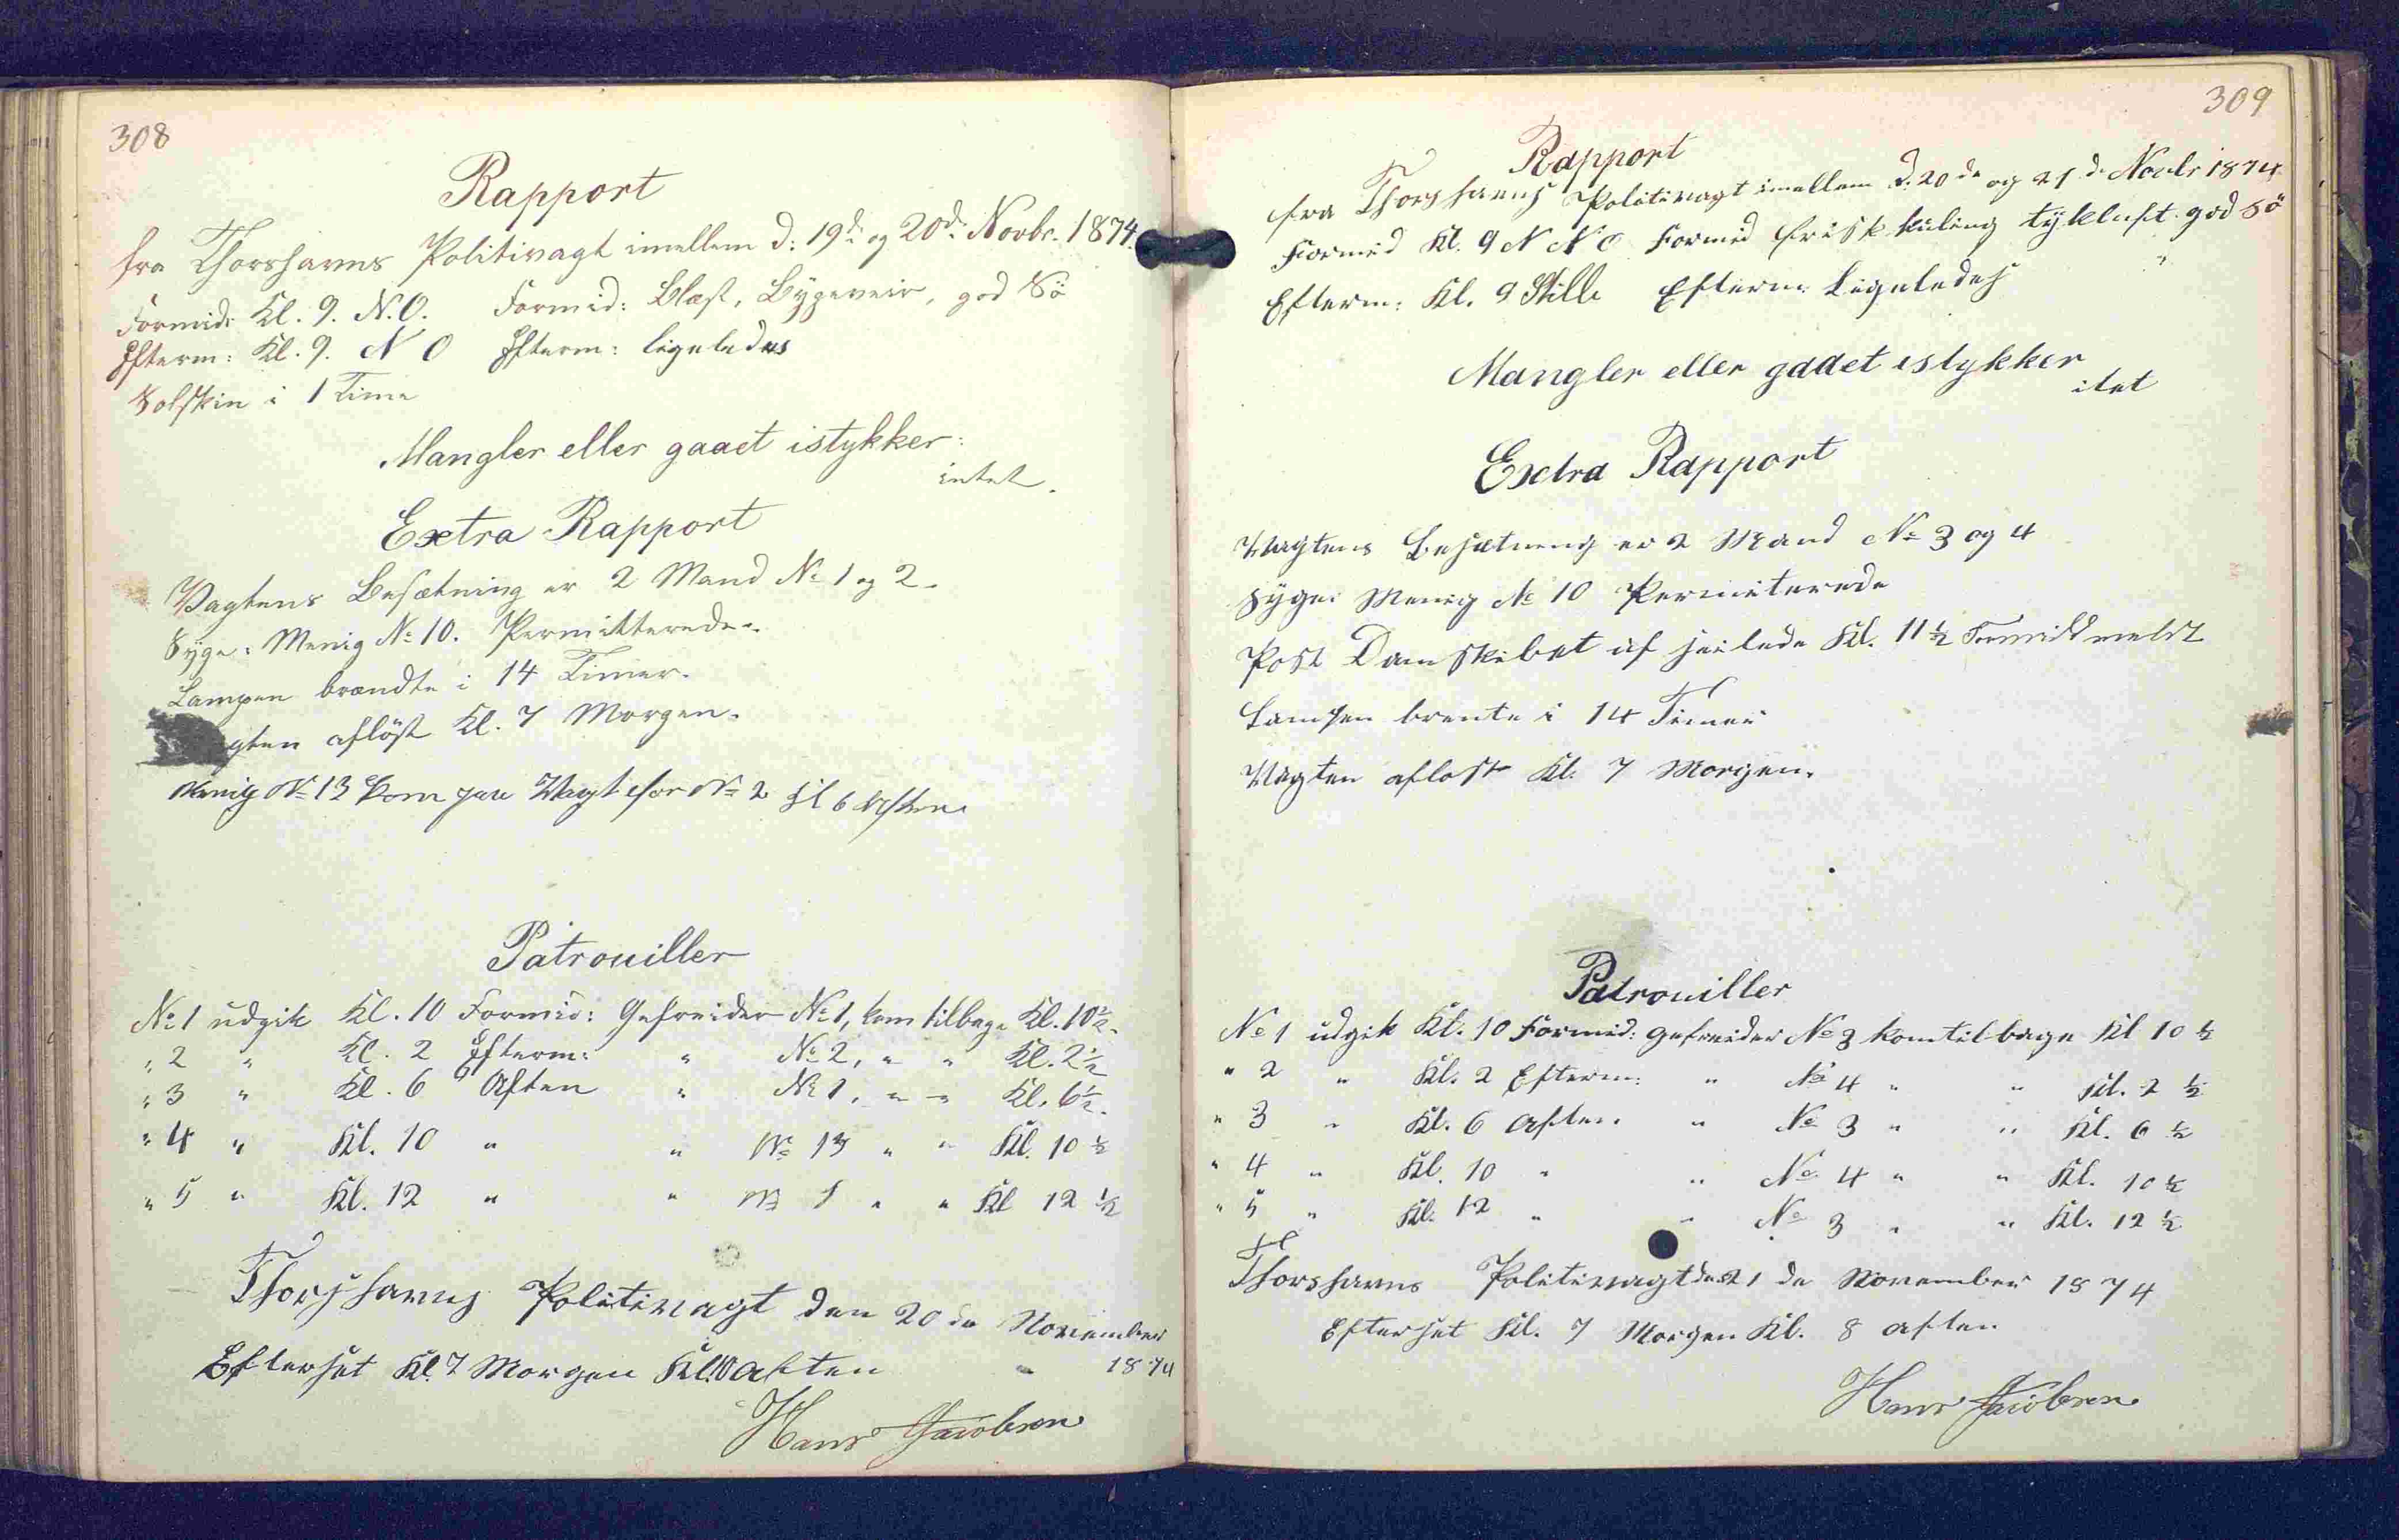 308
Rapport
fra Thorshavns Politivagt imellem d: 19de og 20de Novbr. 1874.
Formid: Kl. 9. N.O. Formid: Blæst, Bygeveir, god Sö
Efterm: Kl. 9. N O Efterm: ligeledes
Solskin i 1 Time
Mangler eller gaaet istykker:
intet.
Extra Rapport
Vagtens Besætning er 2 Mand No 1 og 2.
Syge: Menig No 10. Permitterede..
Lampen brændte i 14 Timer.
gten aflöst Kl. 7 Morgen.
Menig No 13 kom paa Vagt for No 2 Kl 6 Aften
Patrouiller
No 1 udgik Kl. 10 Formid: Gefreider No 1, kom tilbage Kl. 10½.
" 2 " Kl. 2 Efterm: " No 2, " " Kl. 2½
" 3 " Kl. 6 Aften " No 1, " " Kl. 6½.
" 4 " Kl. 10 " " No 13 " " Kl. 10 ½
" 5 " Kl. 12 " " No 1 " " Kl 12 ½
Thorshavns Politivagt den 20de November
Efterset Kl. 7 Morgen Kl. Aften " 1874
Hans Jacobsen
309
Rapport
fra Thorshavns Politivagt imellem d. 20de og 21de Novbr 1874
Formid Kl. 9 N N O Formid frisk kuling tykluft god Sö
Efterm: Kl. 9 Stille Efterm: Ligeledes "
Mangler eller gaaet istykker
itet
Extra Rapport
Vagtens Besætning er 2 Mand No 3 og 4
Syge: Menig No 10 Permiterede
Post Damskibet af seilede Kl. 11½
Lampen brente i 14 Timer
Vagten aflost Kl. 7 Morgen.
Patrouiller
No 1 udgik Kl. 10 Formid: gefreider No 3 kom tilbage Kl 10 ½
" 2 " Kl. 2 Efterm: " No 4 " " Kl. 2 ½
" 3 " Kl. 6 Aften. " No 3 " " Kl. 6 ½
" 4 " Kl. 10 " " No 4 " " Kl. 10 ½
" 5 " Kl. 12 " " No 3 " " Kl. 12 ½
Thorshavns Politivagt den 21 de November 1874
Efterset Kl. 7 Morgen Kl. 8 aften
Hans Jacobsen